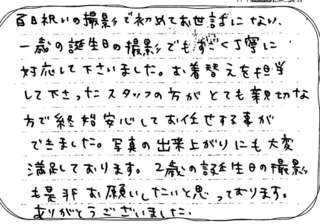 百日祝いの撮影で初めてお世話になり、
一歳の誕生日の撮影でもすごく丁寧に
対応して下さいました。お着替えを担当
して下さったスタッフの方がとても親切な
方で終始安心してお任せする事が
できました。写真の出来上がりにも大変
満足しております。2歳の誕生日の撮影
も是非お願いしたいと思っております。
ありがとうございました。